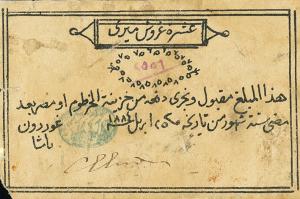 عشرة غروش ميرى
هذا المبلغ مقبول ويجرى دفعه من خزينة الخرطوم او مصر بعد
مضى ستة شهور من تاريخه ابريل ١٨٨٤
غوردون
باشا